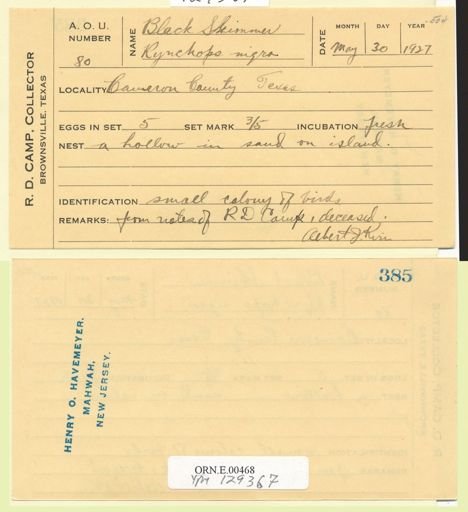 R. D. CAMP, COLLECTOR
BROWNSVILLE, TEXAS
A. O. U. NUMBER 80
NAME Black Skimmer
Rynchops nigra
DATE MONTH DAY YEAR
May 30 1927
LOCALITY Cameron County Texas
EGGS IN SET 5 SET MARK 3/5 INCUBATION fresh
NEST a hollow in sand on island.
IDENTIFICATION small colony of birds
REMARKS: from notes of R D Camp, deceased.
Albert J.
385
HENRY O. HAVEMEYER.
MAHWAH,
NEW JERSEY.
ORN.E.00468
YPM 129367